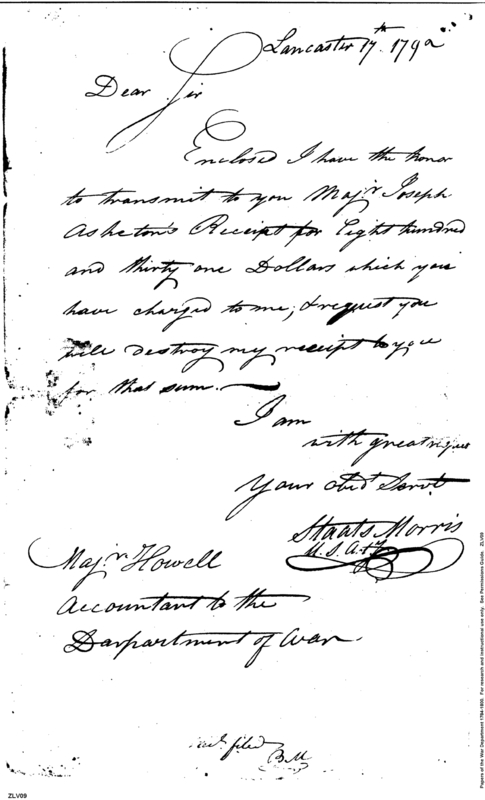 Lancaster 17th. 1792
Dear Sir
Enclosed I have the honor
to transmit to you Majr. Joseph
Asheton's Receipt for Eight hundred
and thirty one Dollars which you
have charged to me, & request you
will destroy my receipt to you
for that sum.
I am
with great
Your obedt Servt.
Staats Morris
U.S. Arty
Majr. Howell
Accountant to the
Darpartment of War.
filed
BM
ZLV09
Papers of the War Department 1784-1800. For research and instructional use only. See Permissions Guide. ZLV09